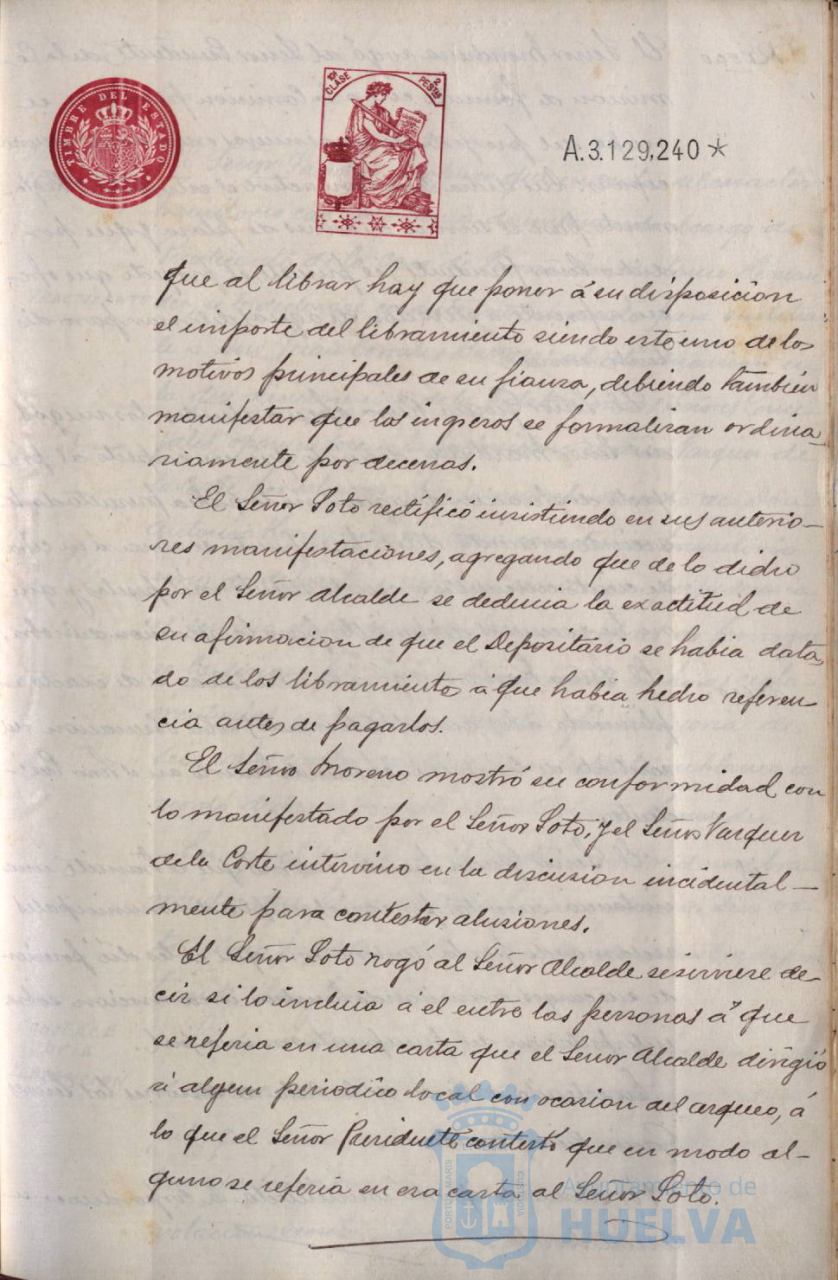 TIMBRE DEL ESTADO
10ª CLASE 2 PESTAS
A.3.129,240 *
que al librar hay que poner á su disposicion
el importe del libramiento siendo este uno de los
motivos principales de su fianza, debiendo también
manifestar que los ingresos se formalizan ordina
riamente por decenas.
El Señor Soto rectificó insistiendo en sus anterio-
res manifestaciones, agregando que de lo dicho
por el Señor Alcalde se deducia la exactitud de
su afirmacion de que el Depositario se habia data
do de los libramientos á que habia hecho referen
cia antes de pagarlos.
El Señor Moreno mostró su conformidad con
lo manifestado por el Señor Soto; y el Señor Vazquez
de la Corte intervino en la discusion incidental-
mente para contestar alusiones.
El Señor Soto rogó al Señor Alcalde se sirviese de-
cir si lo incluia á el entre las personas á que
se referia en una carta que el Señor Alcalde dirigió
á algun periodico local con ocasion del arqueo, á
lo que el Señor Presidente contestó que en modo al-
guno se referia en esa carta al Señor Soto.
Ayuntamiento de
HUELVA